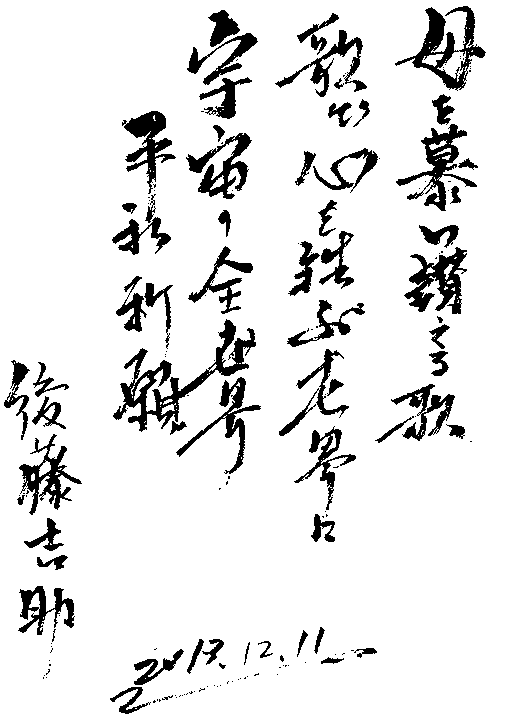 母を慕い讃える歌
歌 心を ぶ に
宇宙の全世界
平和祈願
後藤吉助
2013.12.11